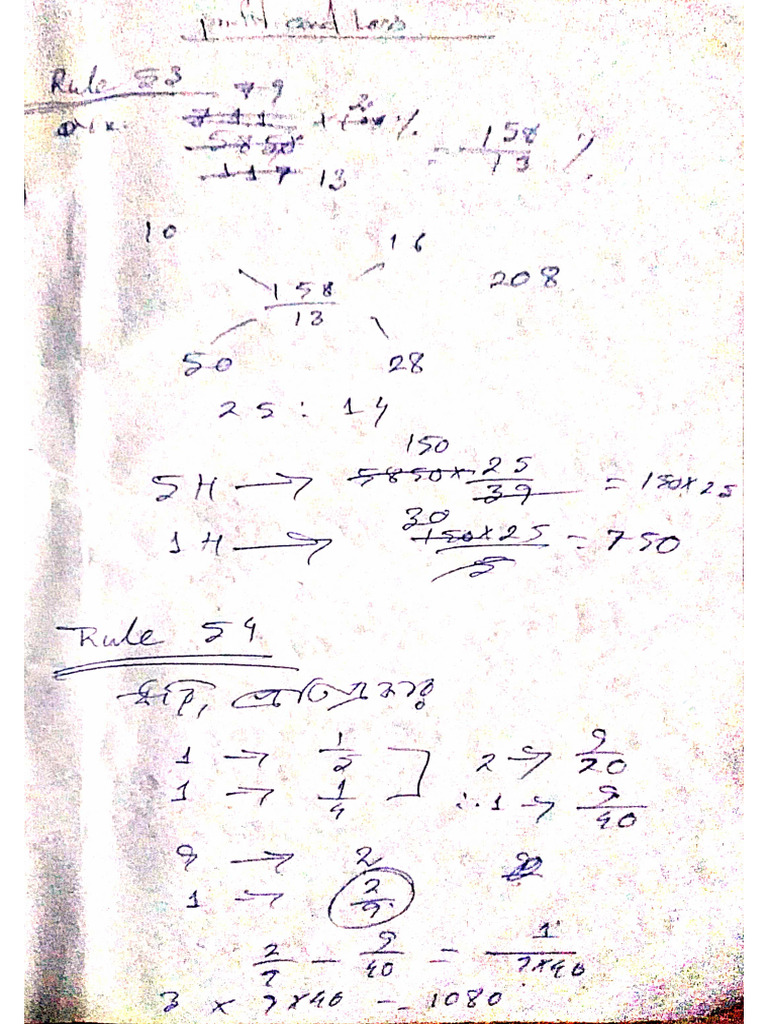 profit and Loss
Rule 53
79
711 × 100 % 2
5850
117 13
= 158/13 %
10 16
158/13 208
50 28
25 : 14
150
5H → 5850 × 25/39 = 150 × 25
30
1H → 150 × 25/5 = 750
Rule 54
1 → 1/5 2 → 9/20
1 → 1/4 ∴ 1 → 9/40
9 → 2
1 → 2/9
2/9 - 9/40 = 1/9×40
3 × 9 × 40 = 1080